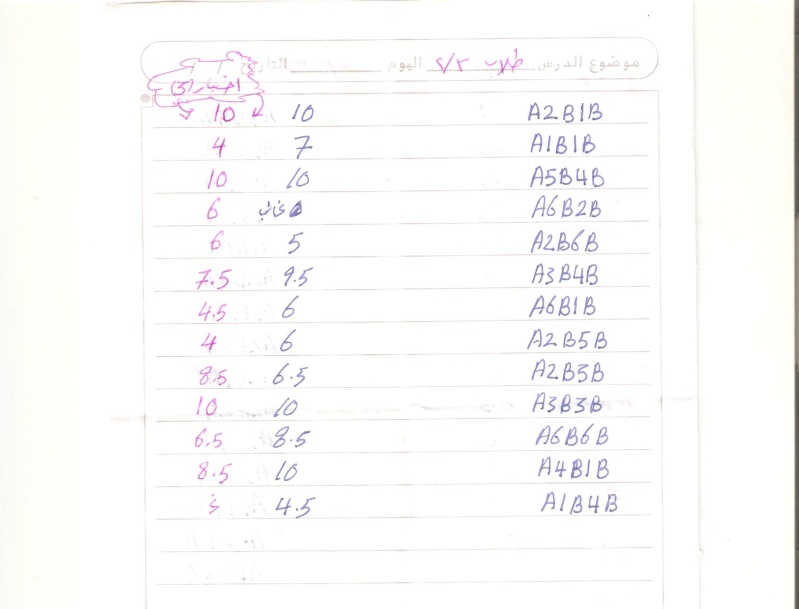 موضوع الدرس طلاب ٢/٣ اليوم التاريخ / /
اختبار (3)
A2B1B 10 10
A1B1B 7 4
A5B4B 10 10
A6B2B غائب 6
A2B6B 5 6
A3B4B 9.5 7.5
A6B1B 6 4.5
A2B5B 6 4
A2B3B 6.5 8.5
A3B3B 10 10
A6B6B 8.5 6.5
A4B1B 10 8.5
A1B4B 4.5 غ